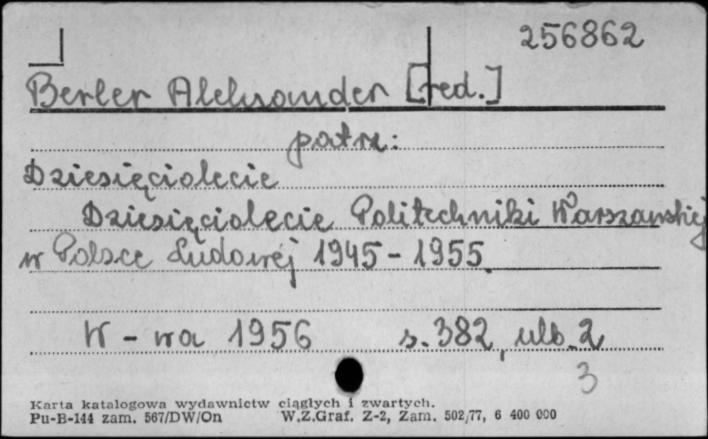 256862
Berler Aleksander [red.]
patrz:
Dziesięciolecie
Dziesięciolecie Politechniki Warszawskiej
w Polsce Ludowej 1945-1955.
W-wa 1956 s. 382, ulb. 2
3
Karta katalogowa wydawnictw ciągłych i zwartych.
Pu-B-144 zam. 567/DW/On W.Z.Graf. Z-2, Zam. 502/77, 6 400 000